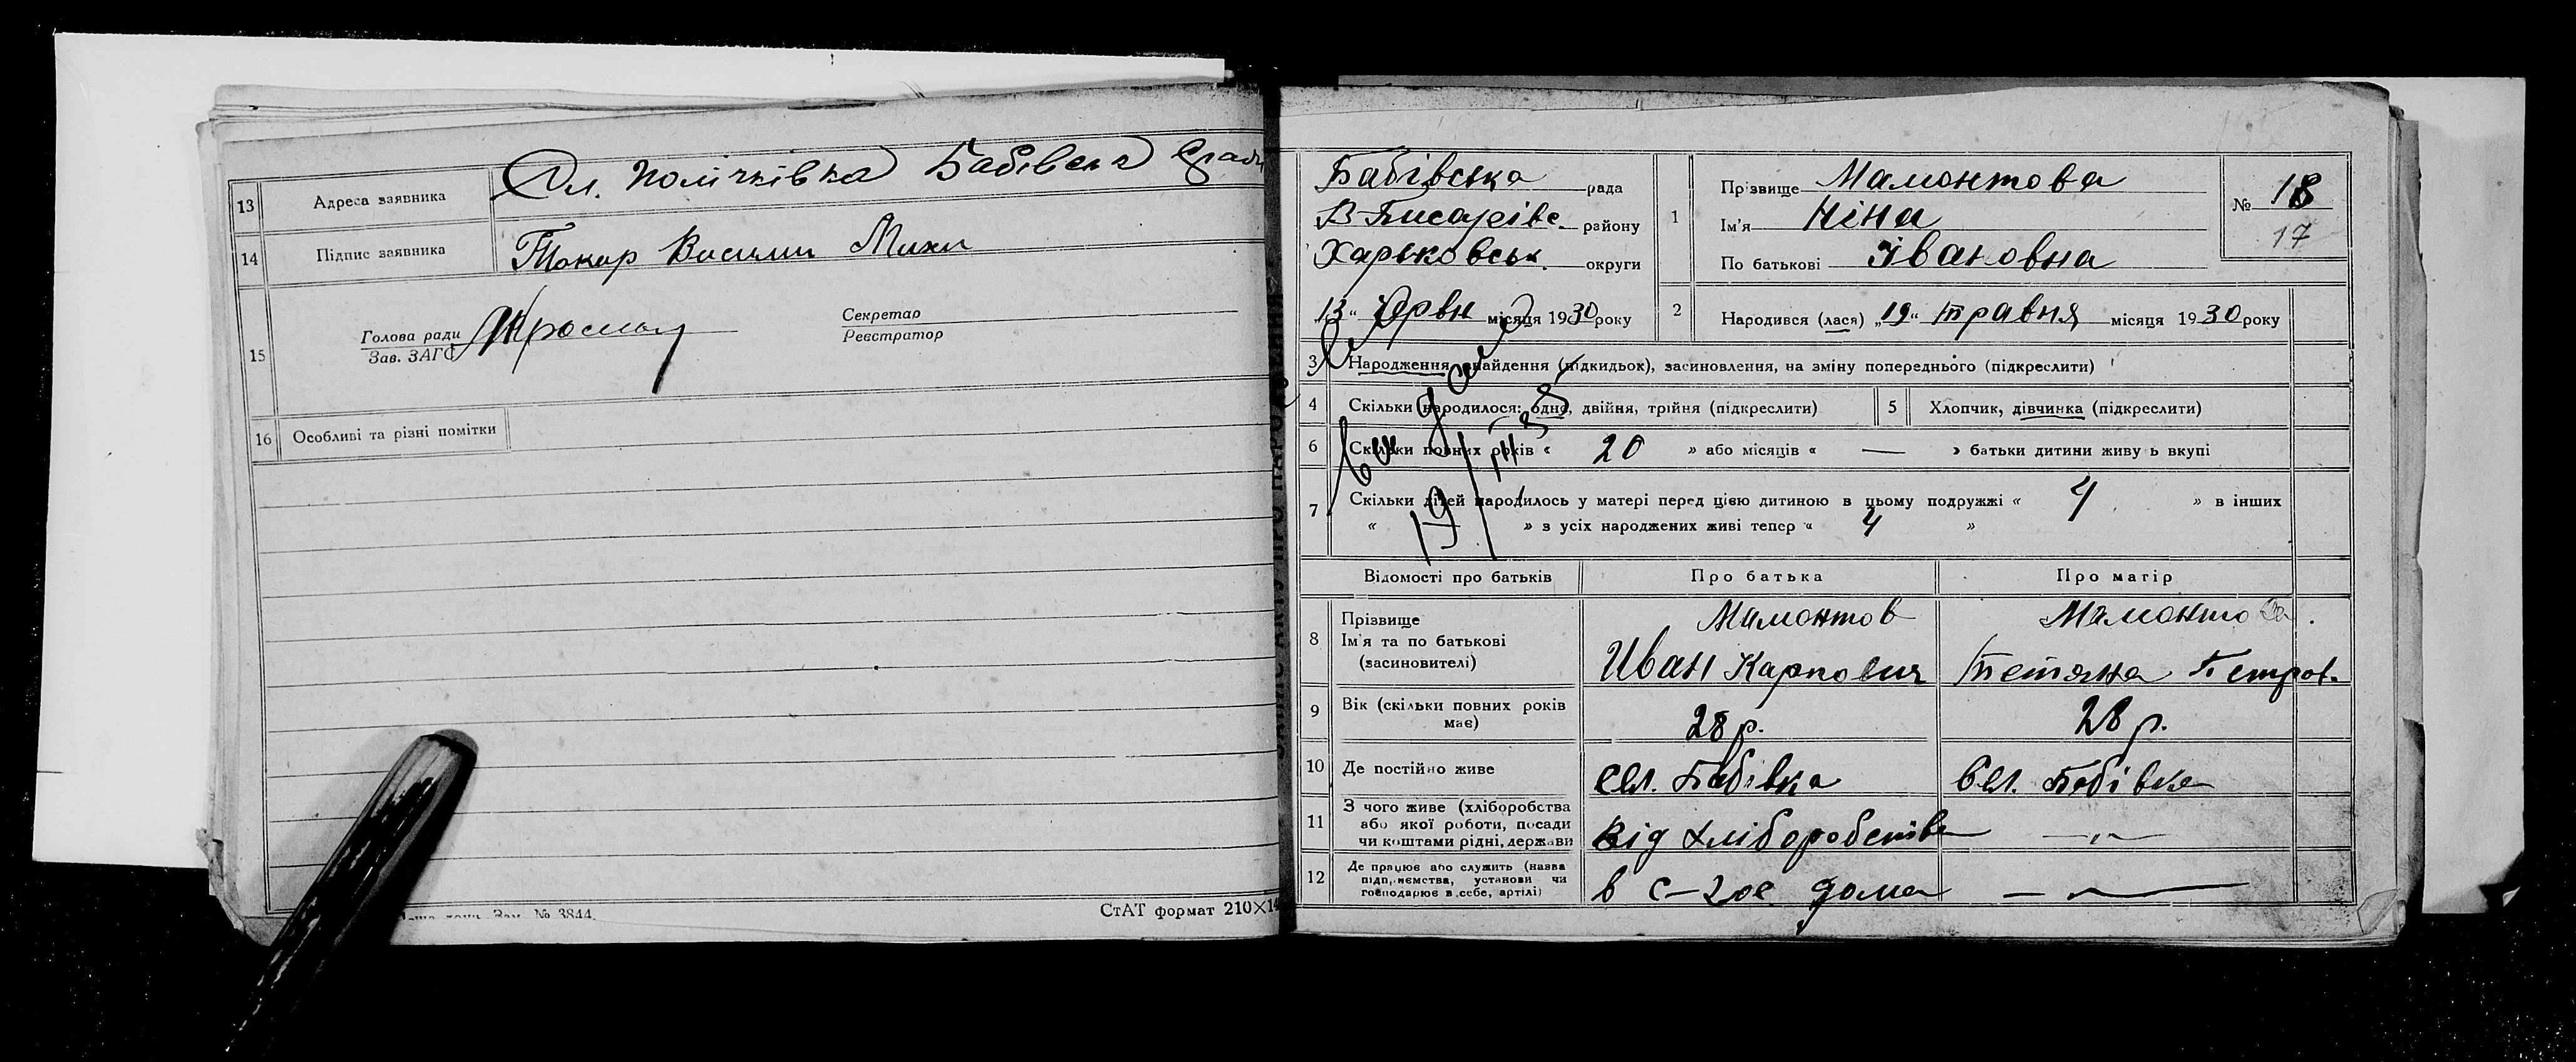 13 Адреса заявника Ол. Полічківка Бабівська сради
14 Підпис заявника Токар Васили Михи
15 Голова ради Секретар
Зав. ЗАГС Реєстратор
16 Особливі та різні помітки
Зам. № 3844.
СтАТ формат 210×14
Бабівська рада
В-Писарівс. району
Харьковськ. округи
„13“ Червн місяця 1930 року
1 Прізвище Мамонтова
Ім'я Ніна
По батькові Івановна
№ 18
17
2 Народився (лася) „19“ травня місяця 1930 року
3 Народження, знайдення (підкидьок), засиновлення, на зміну попереднього (підкреслити)
4 Скільки народилося: одно, двійня, трійня (підкреслити) 5 Хлопчик, дівчинка (підкреслити)
6 Скільки повних років « 20 » або місяців « — » батьки дитини живуть вкупі
7 Скільки дітей народилось у матері перед цією дитиною в цьому подружжі « 4 » в інших
« » з усіх народжених живі тепер « 4 »
Відомості про батьків Про батька Про матір
8 Прізвище Мамонтов Мамонтова.
Ім'я та по батькові
(засиновителі) Иван Карпович Тетяна Петров.
9 Вік (скільки повних років
має) 28 р. 28 р.
10 Де постійно живе сел. Бабівка сел. Бабівка
11 З чого живе (хліборобства
або якої роботи, посади
чи коштами рідні, держави від хліборобства —„—
12 Де працює або служить (назва
підприємства, установи чи
господарює в себе, артілі) в с-гос. дома —„—